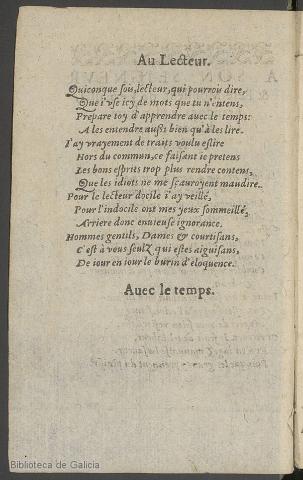 Au Lecteur.
Quiconque sois, lecteur, qui pourrou dire,
Que i'vse icy de mots que tu n'entens,
Prepare toy d'apprendre auec le temps:
A les entendre aussi bien qu'à les lire.
I'ay vrayement de traits voulu eslire
Hors du commun, ce faisant ie pretens
Les bons esprits trop plus rendre contens,
Que les idiots ne me sçauroyent maudire.
Pour le lecteur docile i'ay veillé,
Pour l'indocile ont mes yeux sommeillé,
Arriere donc enuieuse ignorance.
Hommes gentils, Dames & courtisans,
C'est à vous seulz qui estes aiguisans,
De iour en iour le burin d'eloquence.
Auec le temps.
Biblioteca de Galicia